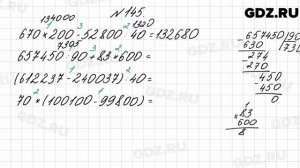 GDZ.RU
№ 145
134000 1320
670 × 200 - 52800 : 40 = 132680
7305
657450 : 90 + 83 × 600 =
(612237 - 240037) : 40 =
70 × (100100 - 99800) =
657450 | 90
630 | 730
274
270
450
450
0
× 83
600
8
GDZ.RU